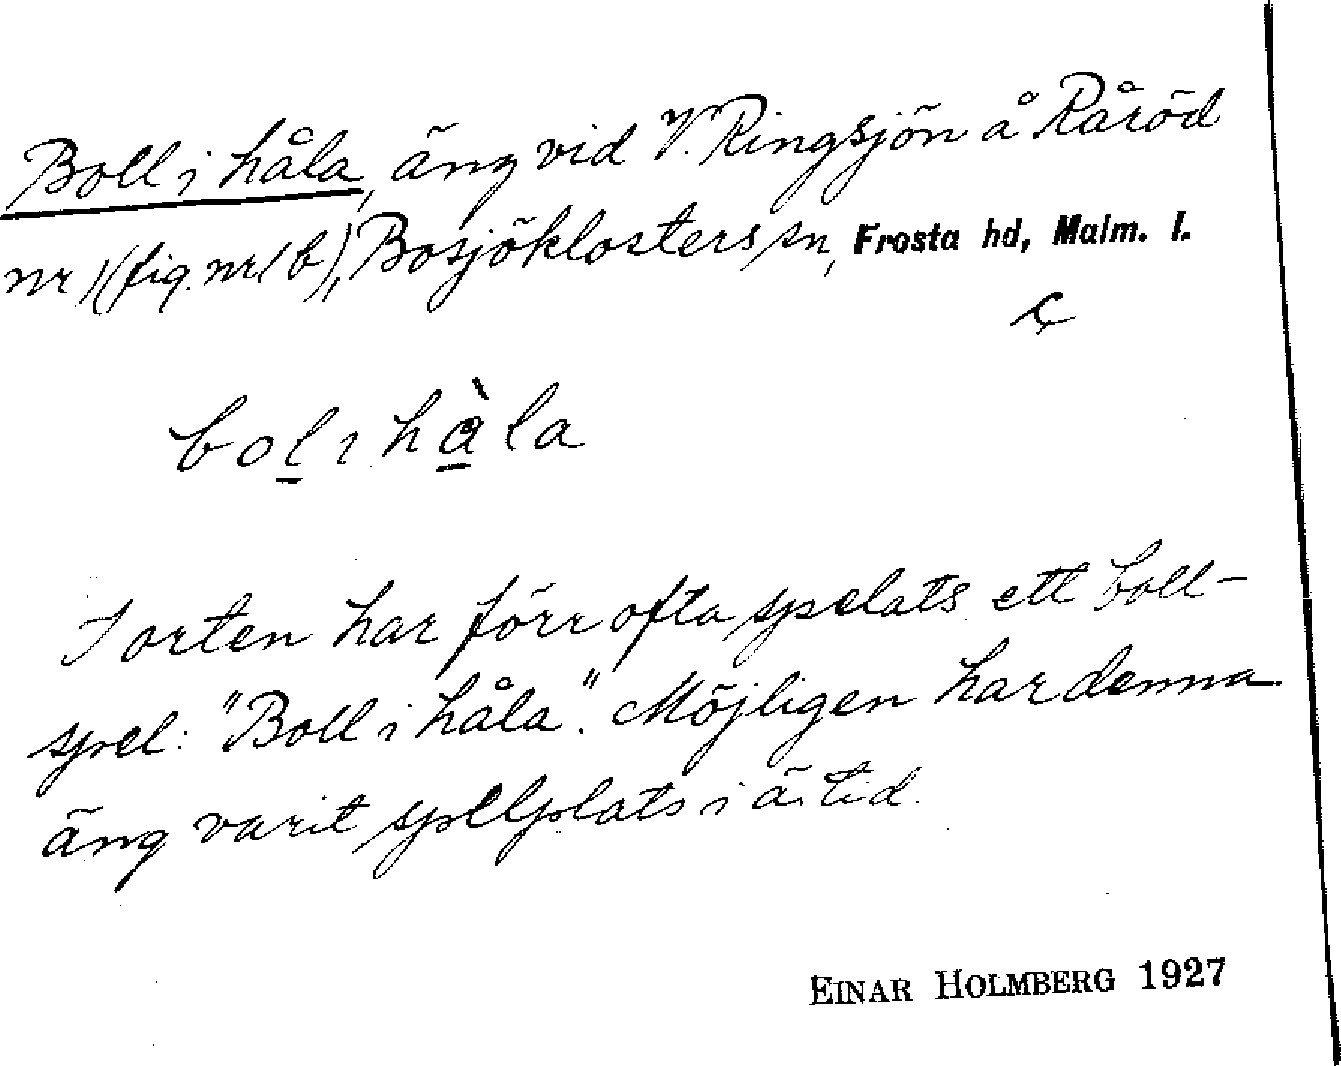 Boll i håla, äng vid V. Ringsjön å Råröd
nr 1 (fig. nr 1 b), Bosjöklosters sn, Frosta hd, Malm. l.
bol ı hàla
I orten har förr ofta spelats ett boll-
spel: "Boll i håla". Möjligen har denna
äng varit spelplats i ä. tid.
EINAR HOLMBERG 1927